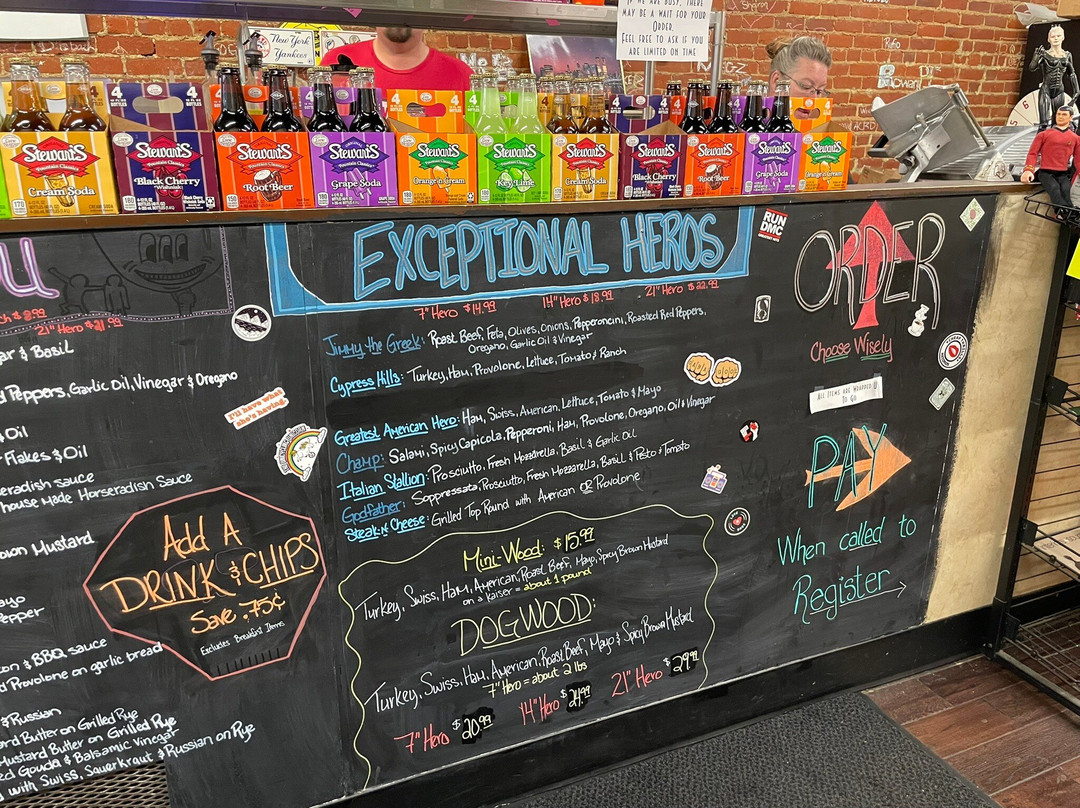 IF WE ARE BUSY, THERE
MAY BE A WAIT FOR YOUR
ORDER.
FEEL FREE TO ASK IF YOU
ARE LIMITED ON TIME
New York
Yankees
Stewart's
Fountain Classics
Cream Soda
Stewart's
Fountain Classics
Black Cherry
Wishniak
Stewart's
Fountain Classics
Root Beer
Stewart's
Fountain Classics
Grape Soda
Stewart's
Fountain Classics
Orange n Cream
Stewart's
Fountain Classics
Key Lime
Stewart's
Fountain Classics
Cream Soda
Stewart's
Black Cherry
Wishniak
Stewart's
Root Beer
Stewart's
Grape Soda
Stewart's
Orange n Cream
U
21" Hero $21.99
& Basil
Peppers, Garlic Oil, Vinegar & Oregano
Oil
Flakes & Oil
sauce
house Made Horseradish Sauce
Mustard
& BBQ sauce
Provolone on garlic bread
& Russian
Butter on Grilled Rye
Mustard Butter on Grilled Rye
Gouda & Balsamic Vinegar
with Swiss, Sauerkraut & Russian on Rye
I'll have what
she's having.
Add A
DRINK & CHIPS
Save .75¢
Excludes Breakfast Items
EXCEPTIONAL HEROS
7" Hero $14.99 14" Hero $18.99 21" Hero $22.99
Jimmy the Greek: Roast Beef, Feta, Olives, Onions, Pepperoncini, Roasted Red Peppers,
Oregano, Garlic Oil & Vinegar
Cypress Hills: Turkey, Ham, Provolone, Lettuce, Tomato & Ranch
Greatest American Hero: Ham, Swiss, American, Lettuce, Tomato & Mayo
Champ: Salami, Spicy Capicola, Pepperoni, Ham, Provolone, Oregano, Oil & Vinegar
Italian Stallion: Prosciutto, Fresh Mozzarella, Basil & Garlic Oil
Godfather: Soppressata, Prosciutto, Fresh Mozzarella, Basil & Pesto & Tomato
Steak N Cheese: Grilled Top Round with American OR Provolone
Mini-Wood: $15.99
Turkey, Swiss, Ham, American, Roast Beef, Mayo, Spicy Brown Mustard
on a Kaiser = about 1 pound
DOGWOOD:
Turkey, Swiss, Ham, American, Roast Beef, Mayo & Spicy Brown Mustard
7" Hero = about 2 lbs
7" Hero $20.99 14" Hero $24.99 21" Hero $29.99
RUN
DMC
ORDER
Choose Wisely
ALL ITEMS ARE WRAPPED U
TO GO
PAY
When called to
Register